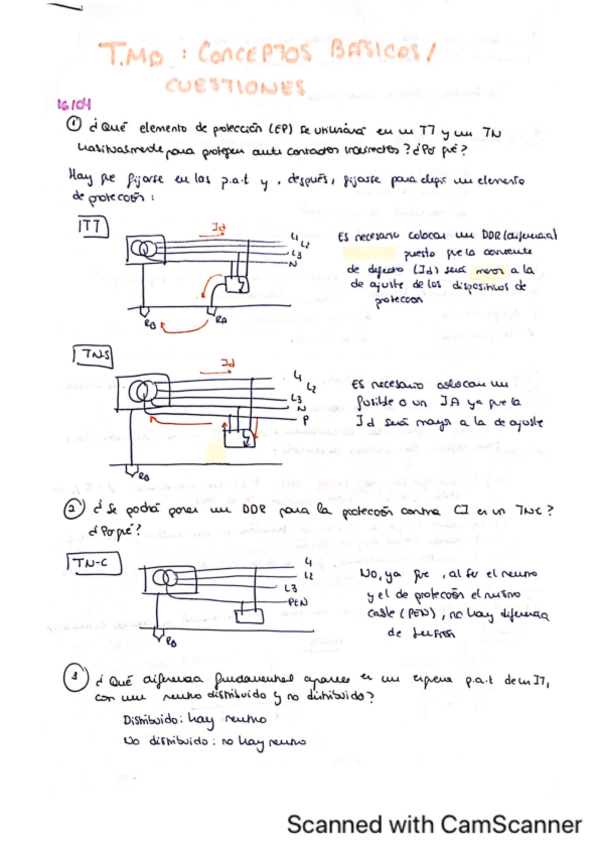 T.MD : CONCEPTOS BASICOS/
CUESTIONES
16/04
① ¿Qué elemento de protección (EP) se utilizará en un TT y un TN
habitualmente para proteger ante contactos indirectos? ¿Por qué?
Hay que fijarse en las p.a.t y, después, fijarse para elegir un elemento
de protección:
TT
Id
L1
L2
L3
N
RB
RA
Es necesario colocar un DDR (diferencial)
puesto que la corriente
de defecto (Id) será menor a la
de ajuste de los dispositivos de
protección
TNS
Id
L1
L2
L3
N
P
RB
Es necesario colocar un
fusible o un IA ya que la
Id será mayor a la de ajuste
② ¿Se podrá poner un DDR para la protección contra CI en un TNC?
¿Por qué?
TN-C
L1
L2
L3
PEN
RB
No, ya que, al ser el neutro
y el de protección el mismo
cable (PEN), no hay diferencia
de
③ ¿Qué diferencia fundamental aparece en un esquema p.a.t de un IT,
con un neutro distribuido y no distribuido?
Distribuido: hay neutro
No distribuido: no hay neutro
Scanned with CamScanner